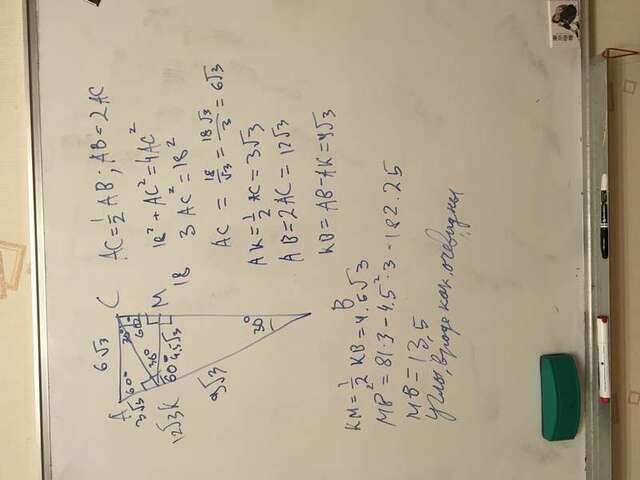 6√3
A
C
3√3
60°
30°
60°
30°
M
12√3
K
60°
4,5√3
18
9√3
30°
B
AC=½AB; AB=2AC
18²+AC²=4AC²
3AC²=18²
AC = 18/√3 = 18√3/3 = 6√3
AK=½AC=3√3
AB=2AC=12√3
KB=AB-AK=9√3
KM=½KB=4.5√3
MB²=81·3-4.5²·3=182.25
MB=13,5
Углы, вроде как, очевидны